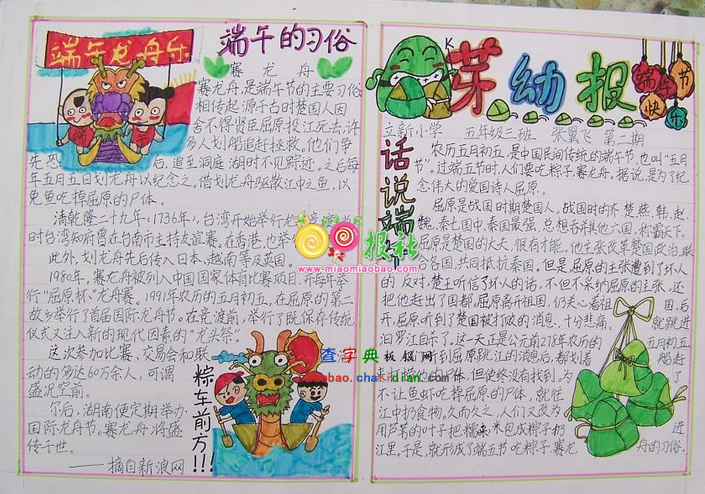 端午龙舟乐
端午的习俗
赛龙舟
赛龙舟,是端午节的主要习俗
相传起源于古时楚国人因
舍不得贤臣屈原投江死去,许
多人划船追赶拯救。他们争
先恐后,追至洞庭湖时不见踪迹。之后每
年五月五日划龙舟以纪念之。借划龙舟驱散江中之鱼,以
免鱼吃掉屈原的尸体。
清乾隆二十九年(1736年),台湾开始举行龙
时台湾知府曾在台南市主持友谊赛。在香港,也举
此外,划龙舟先后传入日本、越南等及英国。
1980年,赛龙舟被列入中国国家体育比赛项目,并每年举
行“屈原杯”龙舟赛。1991年农历的五月初五,在屈原的第二
故乡举行了首届国际龙舟节。在竞渡前,举行了既保存传统
仪式又注入新的现代因素的“龙头祭”。
这次参加比赛、交易会和联
动的多达60万余人,可谓
盛况空前。
尔后,湖南便定期举办
国际龙舟节。赛龙舟将盛
传于世。
——摘自新浪网
粽车前方!!!
芽幼报
端午节
快乐
立新小学 五年级三班 张翼飞 第二期
话说端
农历五月初五,是中国民间传统的端午节,也叫“五月
节”。过端五节时,人们要吃粽子,赛龙舟。据说,是为了纪
念伟大的爱国诗人屈原。
屈原是战国时期楚国人。战国时的齐、楚、燕、韩、赵、
魏、秦七国中,秦国最强,总想吞并其他六国,称霸天下。
屈原是楚国的大夫,很有才能。他主张改革楚国政治,联
合各国,共同抵抗秦国。但是,屈原的主张遭到了坏人
的反对。楚王听信了坏人的话,不但不采纳屈原的主张,还
把他赶出了国都。屈原离开祖国,仍关心着祖国。后
,屈原听到了楚国被打败的消息,十分悲痛,就跳进
汨罗江自杀了。这一天正是公元前278年农历的五月初五
听到屈原跳江的消息后,都划着船赶
来打捞他的尸体,但始终没有找到。为了
不让鱼虾吃掉屈原的尸体,就往
江中扔食物。久而久之,人们又改为
用芦苇的叶子把糯米包成粽子扔进
江里。于是,就形成了端五节吃粽子、赛龙舟的习俗。
报社
www.miaomiaobao.com
查字典板报网
bao.chazidian.com